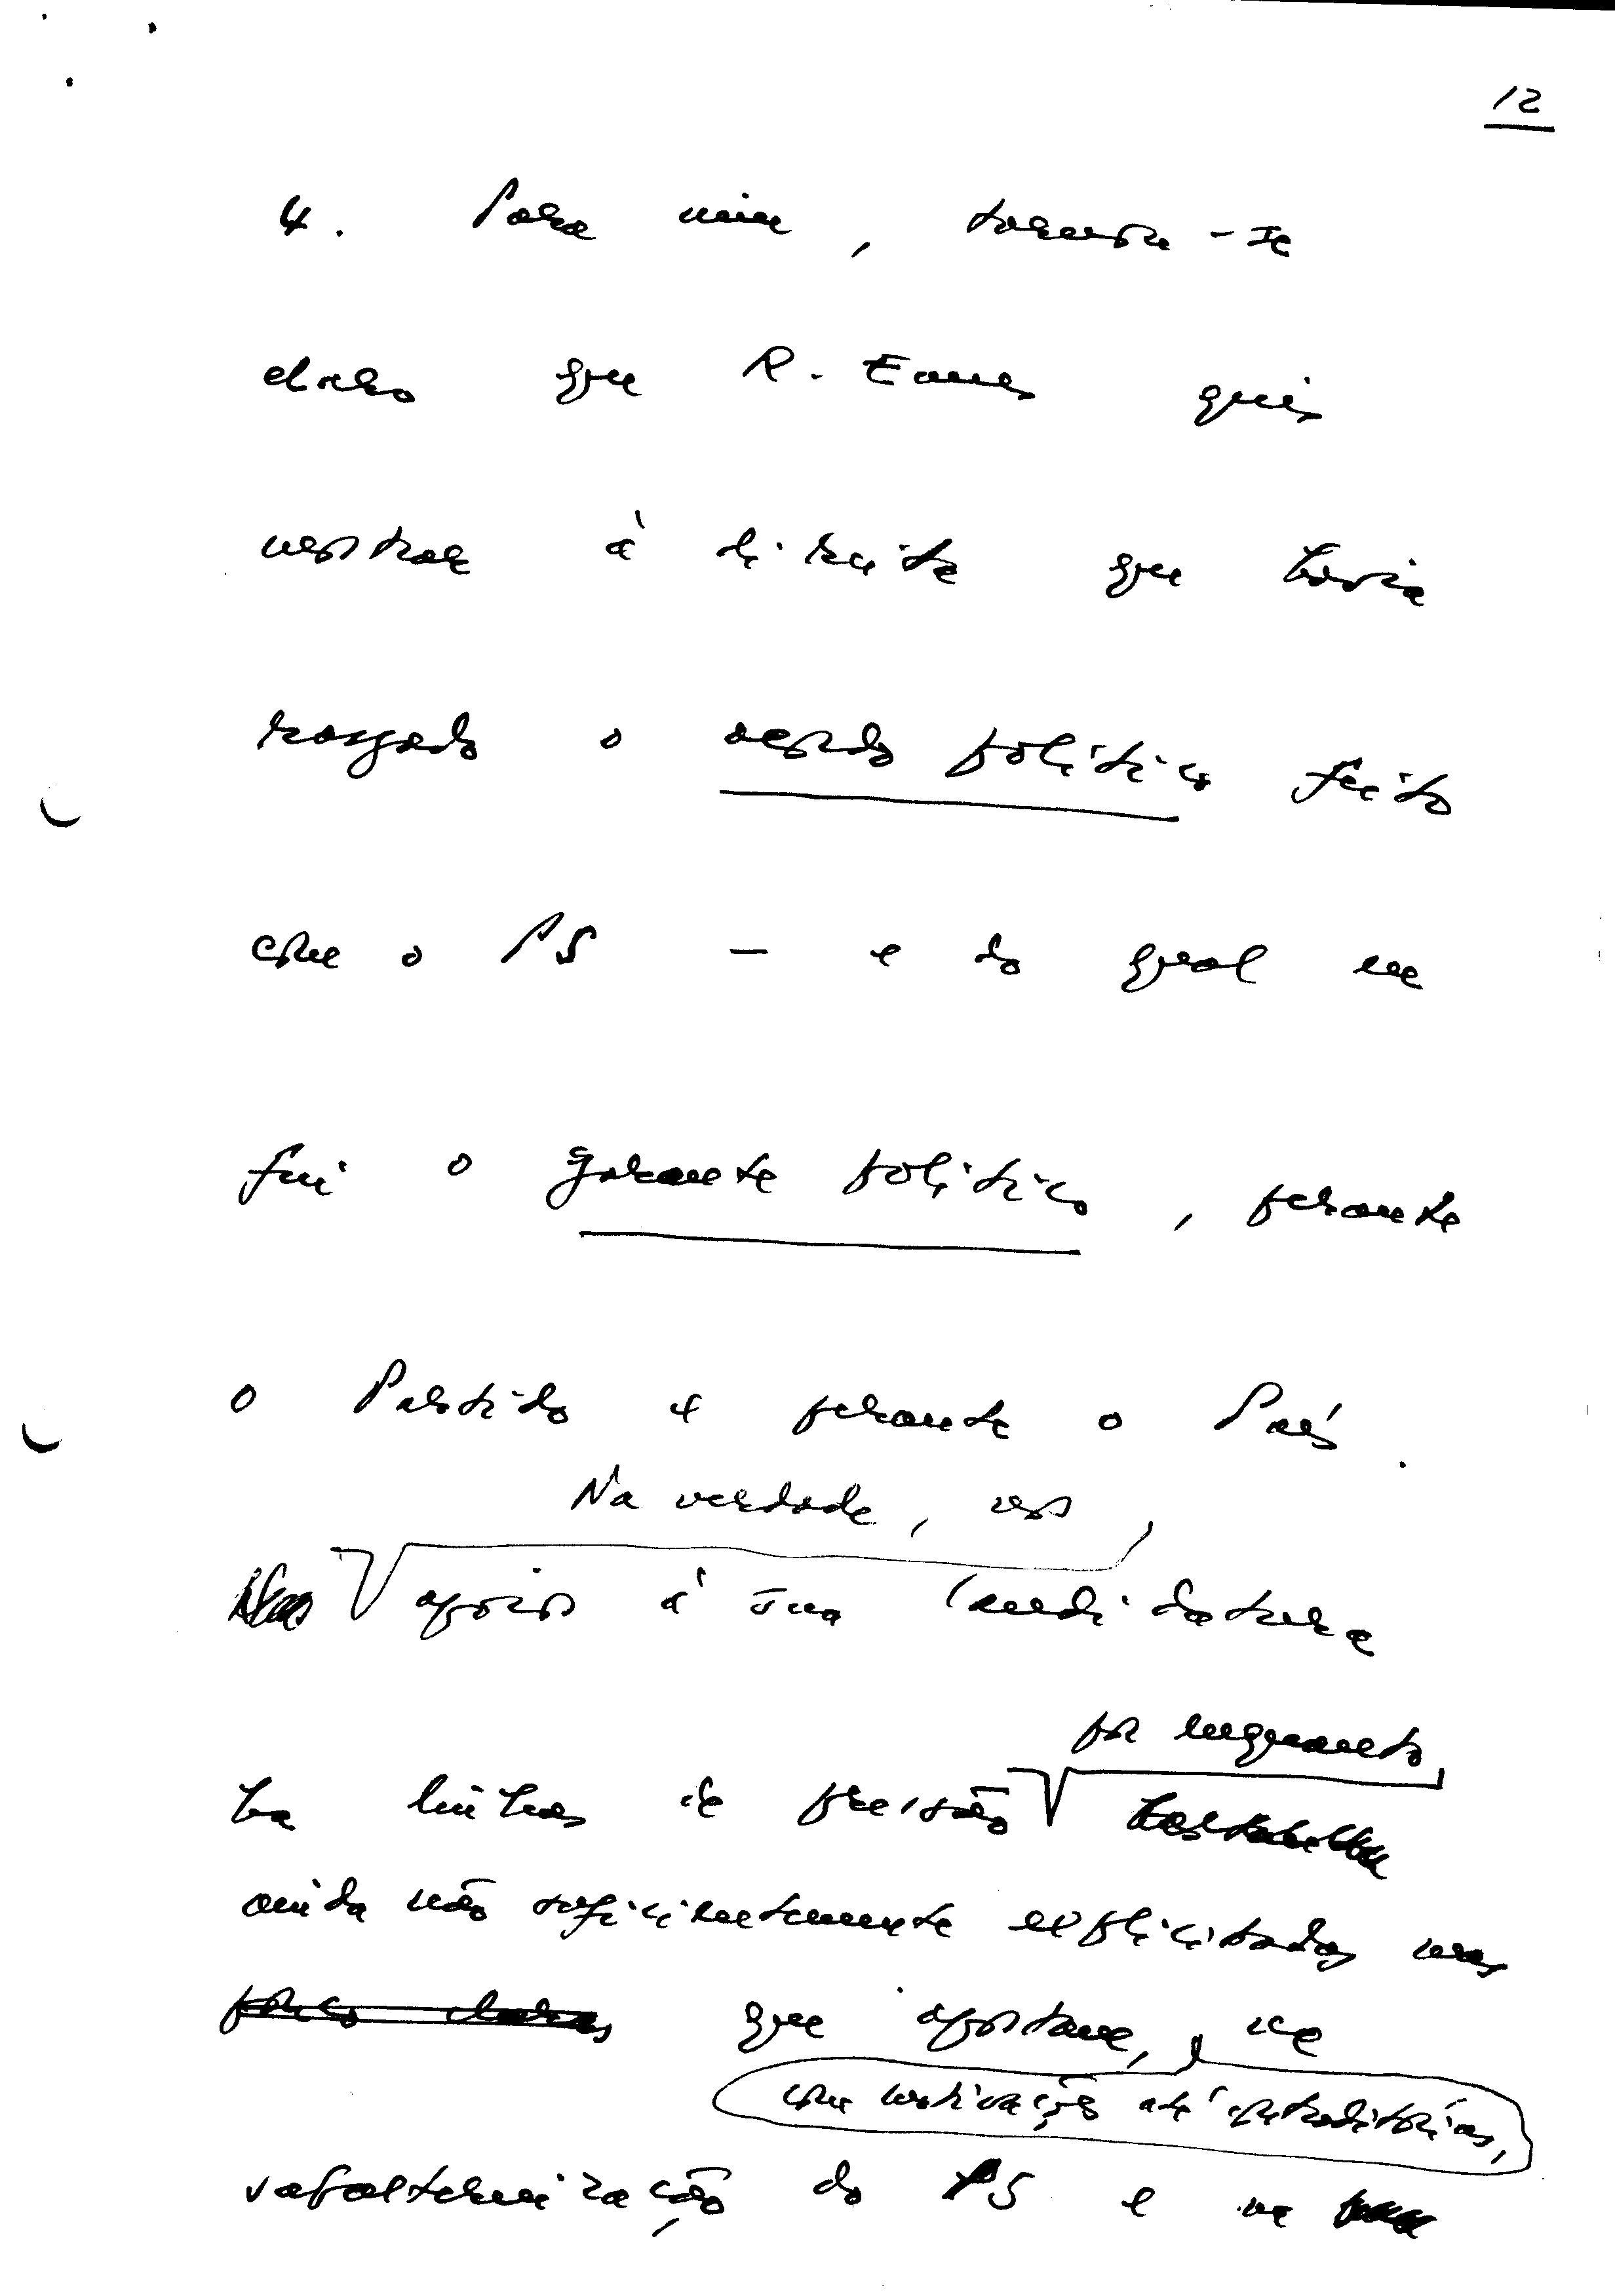 12
4. Para mim, tornou-se
claro que R. Eanes quis
mostrar à direita que havia
rasgado o acordo político feito
com o PS — e do qual eu
fui o garante político, perante
o Partido e perante o País.
Na verdade, nos
apoios à sua Candidatura
por enquanto
há linhas de pressão
ainda não suficientemente explicitadas mas
que apostam, na
com motivações até contraditórias,
subalternização do PS e na